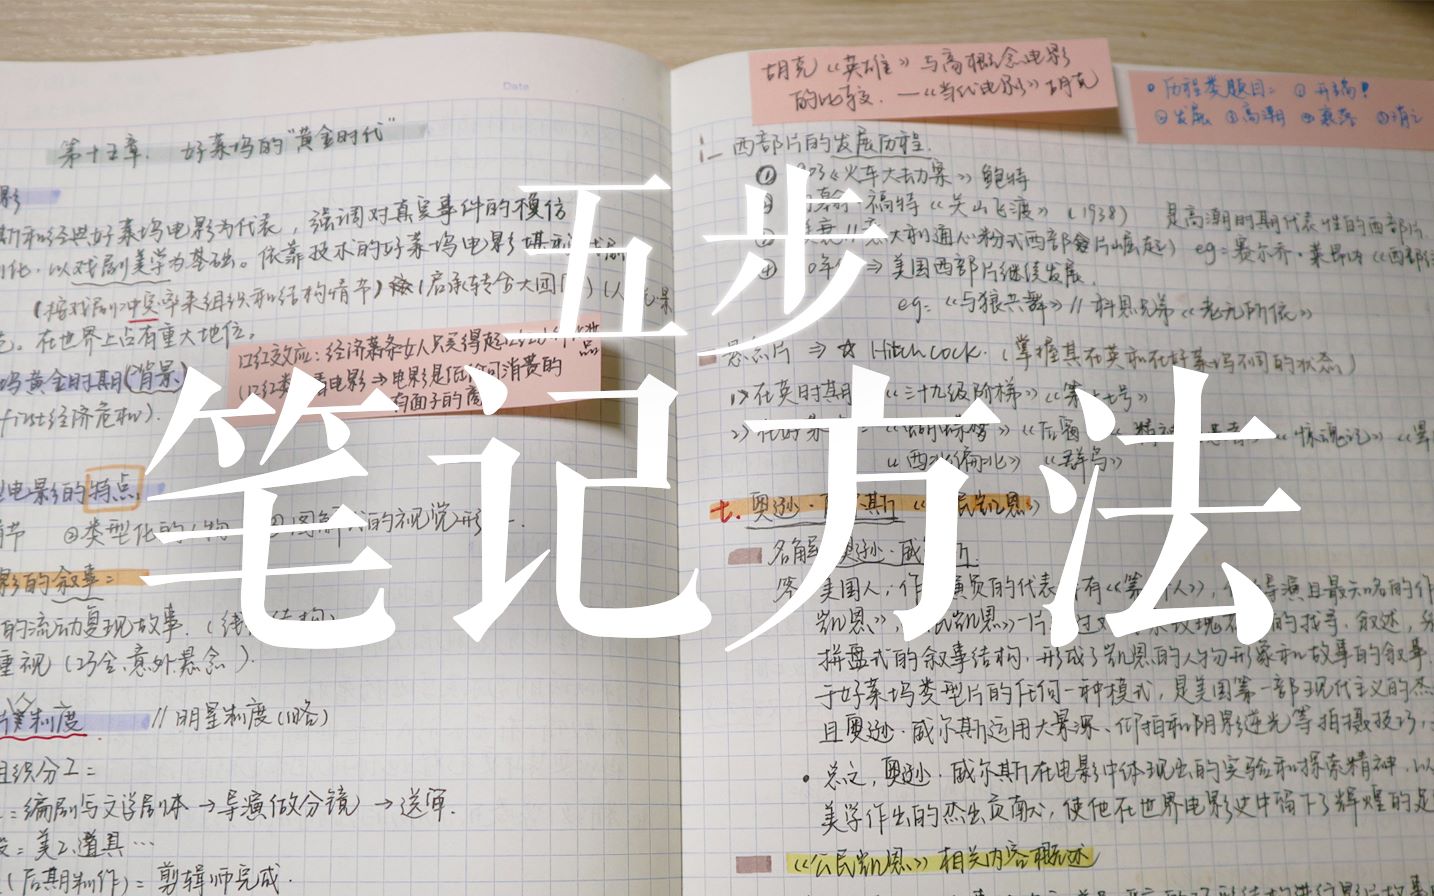 五步
笔记方法
Date
第十五章. 好莱坞的"黄金时代"
影
斯和经典好莱坞电影为代表，强调对真实事件的模仿
化，以戏剧美学为基础。依靠技术的好莱坞电影
(按戏剧冲突率来组织和结构情节) (启承转合大团
。在世界上占有重大地位。
口红效应：经济萧条女人只买得起
看电影⇒电影是低
消费的
有面子的
坞黄金时期(背景)
first经济危机).
电影的特点
节 ②类型化的人物 ③图解式的视觉形
影的叙事：
的流动复现故事.(线 结构)
重视(巧合.意外悬念).
片制度 //明星制度(略)
组织分工：
：编剧与文学剧本→导演(做分镜)→送审.
：美工、道具…
(后期制作)：剪辑师完成.
胡克《英雄》与高概念电影
的比较.—《当代电影》胡克
•历程类题目：①开端！
②发展 ③高潮 ④衰落 ⑤
西部片的发展历程.
① 03《火车大劫案》鲍特
福特《关山飞渡》(1938) 是高潮时期代表性的西部片
意大利通心粉式西部片崛起) eg：赛尔乔·莱昂内《西部
⇒美国西部片继续发展.
eg：《与狼共舞》//科恩兄弟《老无所依》
悬念片⇒☆Hitchcock.(掌握其在英和在好莱坞不同的状态)
1>在英时期 《三十九级阶梯》《第十七号》
2>在好莱 《蝴蝶梦》《后窗 《惊魂记》
《西北偏北》《群鸟》
七.奥逊· 斯《 民凯恩》
名解：奥逊·威 斯.
答 美国人；作 演员的代表 有《第 人》， 导演且最大名的作
凯恩》， 民凯恩》一片 的找寻.叙述，
拼盘式的叙事结构，形成了凯恩的人物形象和故事的叙事.
于好莱坞类型片的任何一种模式，是美国第一部现代主义的杰
且奥逊·威尔斯运用大景深、仰拍和阴影逆光等拍摄技巧，
•总之，奥逊·威尔斯在电影中体现出的实验和探索精神，以
美学作出的杰出贡献，使他在世界电影史中留下了辉煌的足
《公民凯恩》相关内容概述